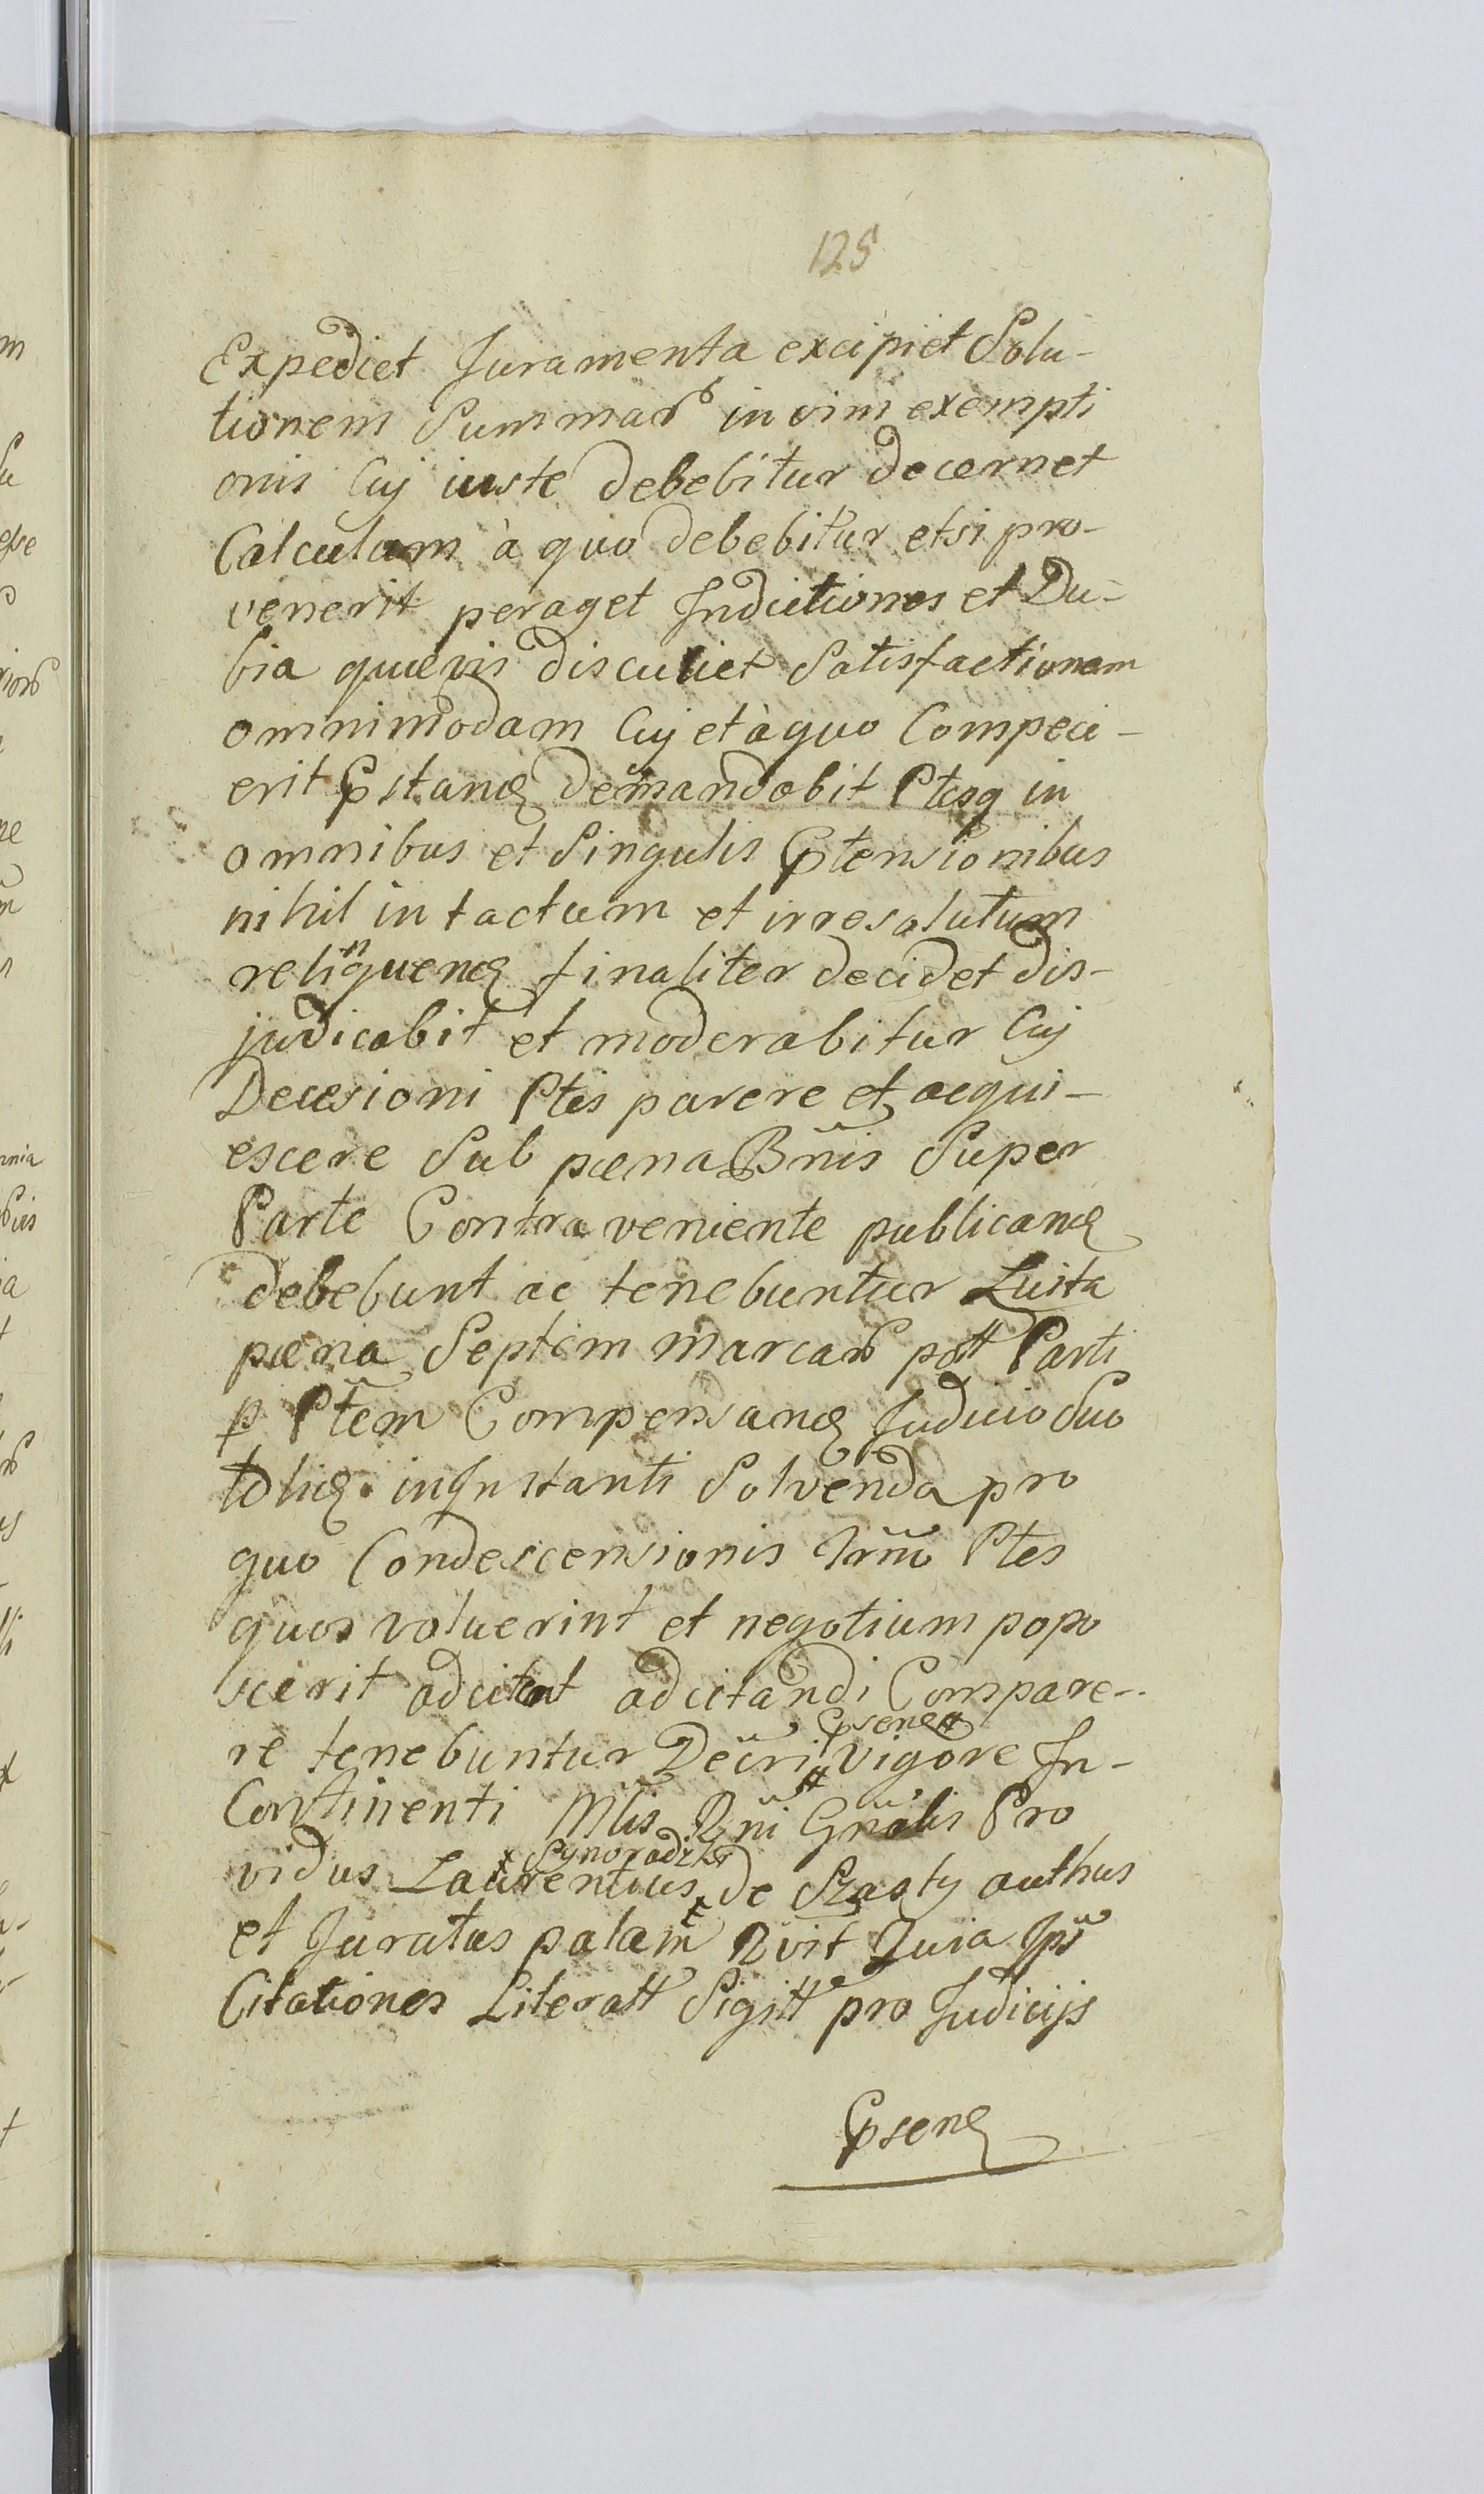 125
Expediet Juramenta excipiet Solu-
tionem Summar in vim exempti
onis Cuj iuste debebitur decernet
Calculum à quo debebitur etsi pro-
venerit peraget Indictiones et Du-
bia quævis discutiet Satisfactionem
omnimodam Cuj et à quo Compeci-
erit Pstand demandabit Ptesq in
omnibus et Singulis Ptensionibus
nihil intactum et irresolutum
relinquend finaliter decidet dis-
judicabit et moderabitur Cuj
Decesioni Ptes parere et acqui-
escere Sub pœna Bnis Super
Parte Contraveniente publicand
debebunt ac tenebuntur Luita
pœna Septem marcar pott Parti
p Ptem Compensand Judicio Suo
in Instanti Solvenda pro
quo Condescensionis Trmo Ptes
quos voluerint et negotium popo
scerit adcitent adcitandi Compare-
Psend #
re tenebuntur Decri # vigore In-
Continenti Mlis Rni Gnalis Pro
x Synoradzki
vidus Laurentius de Szasty authus
et Juratus palam Rvit Quia Ipse
Citationes Literatt Sigitt pro Judicijs
Psend